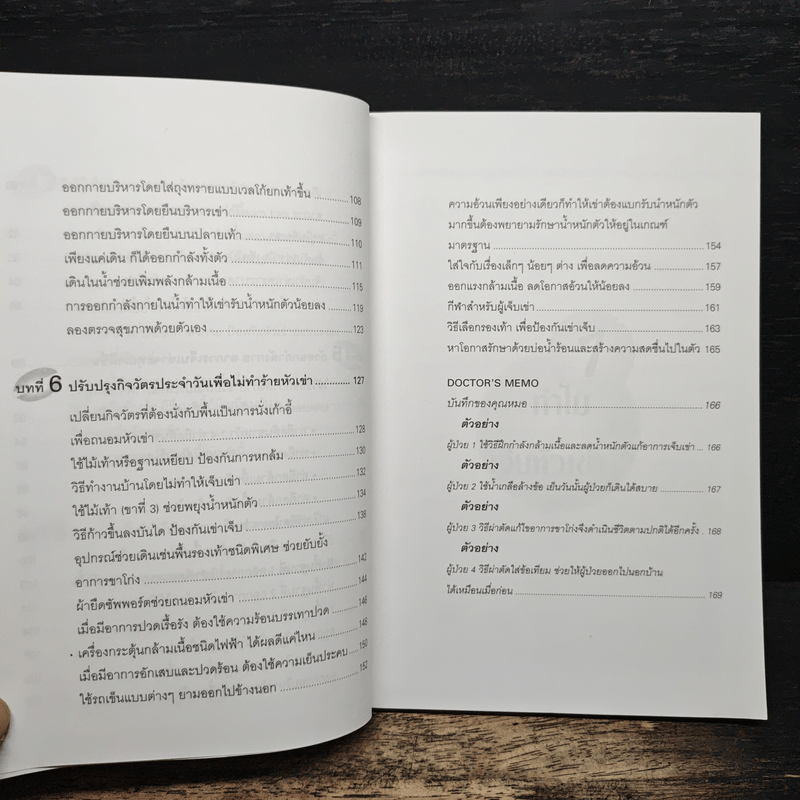 ออกกายบริหารโดยใส่ถุงทรายแบบเวลโก้ยกเท้าขึ้น ........ 108
ออกกายบริหารโดยยืนบริหารเข่า ........ 109
ออกกายบริหารโดยยืนบนปลายเท้า ........ 110
เพียงแค่เดิน ก็ได้ออกกำลังทั้งตัว ........ 111
เดินในน้ำช่วยเพิ่มพลังกล้ามเนื้อ ........ 115
การออกกำลังกายในน้ำทำให้เข่ารับน้ำหนักตัวน้อยลง ........ 119
ลองตรวจสุขภาพด้วยตัวเอง ........ 123
บทที่ 6 ปรับปรุงกิจวัตรประจำวันเพื่อไม่ทำร้ายหัวเข่า ........ 127
เปลี่ยนกิจวัตรที่ต้องนั่งกับพื้นเป็นการนั่งเก้าอี้
เพื่อถนอมหัวเข่า ........ 128
ใช้ไม้เท้าหรือฐานเหยียบ ป้องกันการหกล้ม ........ 130
วิธีทำงานบ้านโดยไม่ทำให้เจ็บเข่า ........ 132
ใช้ไม้เท้า (ขาที่ 3) ช่วยพยุงน้ำหนักตัว ........ 134
วิธีก้าวขึ้นลงบันได ป้องกันเข่าเจ็บ ........ 138
อุปกรณ์ช่วยเดินเช่นพื้นรองเท้าชนิดพิเศษ ช่วยยับยั้ง
อาการขาโก่ง ........ 142
ผ้ายืดซัพพอร์ตช่วยถนอมหัวเข่า ........ 144
เมื่อมีอาการปวดเรื้อรัง ต้องใช้ความร้อนบรรเทาปวด ........ 146
• เครื่องกระตุ้นกล้ามเนื้อชนิดไฟฟ้า ได้ผลดีแค่ไหน ........ 148
เมื่อมีอาการอักเสบและปวดร้อน ต้องใช้ความเย็นประคบ ........ 150
ใช้รถเข็นแบบต่างๆ ยามออกไปข้างนอก ........ 152
ความอ้วนเพียงอย่างเดียวก็ทำให้เข่าต้องแบกรับน้ำหนักตัว
มากขึ้นต้องพยายามรักษาน้ำหนักตัวให้อยู่ในเกณฑ์
มาตรฐาน ........ 154
ใส่ใจกับเรื่องเล็กๆ น้อยๆ ต่าง เพื่อลดความอ้วน ........ 157
ออกแรงกล้ามเนื้อ ลดโอกาสอ้วนให้น้อยลง ........ 159
กีฬาสำหรับผู้เจ็บเข่า ........ 161
วิธีเลือกรองเท้า เพื่อป้องกันเข่าเจ็บ ........ 163
หาโอกาสรักษาด้วยบ่อน้ำร้อนและสร้างความสดชื่นไปในตัว 165
DOCTOR'S MEMO
บันทึกของคุณหมอ ........ 166
ตัวอย่าง
ผู้ป่วย 1 ใช้วิธีฝึกกำลังกล้ามเนื้อและลดน้ำหนักตัวแก้อาการเจ็บเข่า ... 166
ตัวอย่าง
ผู้ป่วย 2 ใช้น้ำเกลือล้างข้อ เย็นวันนั้นผู้ป่วยก็เดินได้สบาย ........ 167
ตัวอย่าง
ผู้ป่วย 3 วิธีผ่าตัดแก้ไขอาการขาโก่งจึงดำเนินชีวิตตามปกติได้อีกครั้ง . 168
ตัวอย่าง
ผู้ป่วย 4 วิธีผ่าตัดใส่ข้อเทียม ช่วยให้ผู้ป่วยออกไปนอกบ้าน
ได้เหมือนเมื่อก่อน ........ 169